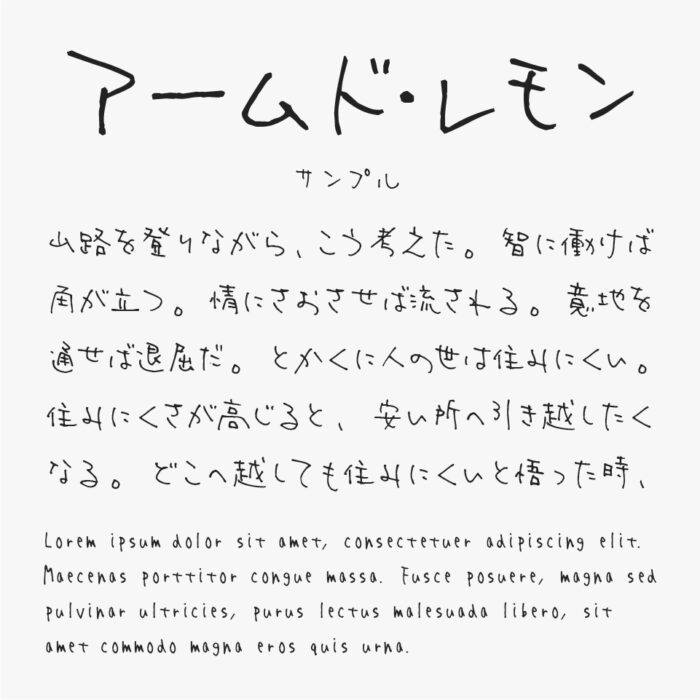 アームド・レモン
サンプル
山路を登りながら、こう考えた。智に働けば
角が立つ。情にさおさせば流される。意地を
通せば退屈だ。とかくに人の世は住みにくい。
住みにくさが高じると、安い所へ引き越したく
なる。どこへ越しても住みにくいと悟った時、
Lorem ipsum dolor sit amet, consectetuer adipiscing elit.
Maecenas porttitor congue massa. Fusce posuere, magna sed
pulvinar ultricies, purus lectus malesuada libero, sit
amet commodo magna eros quis urna.